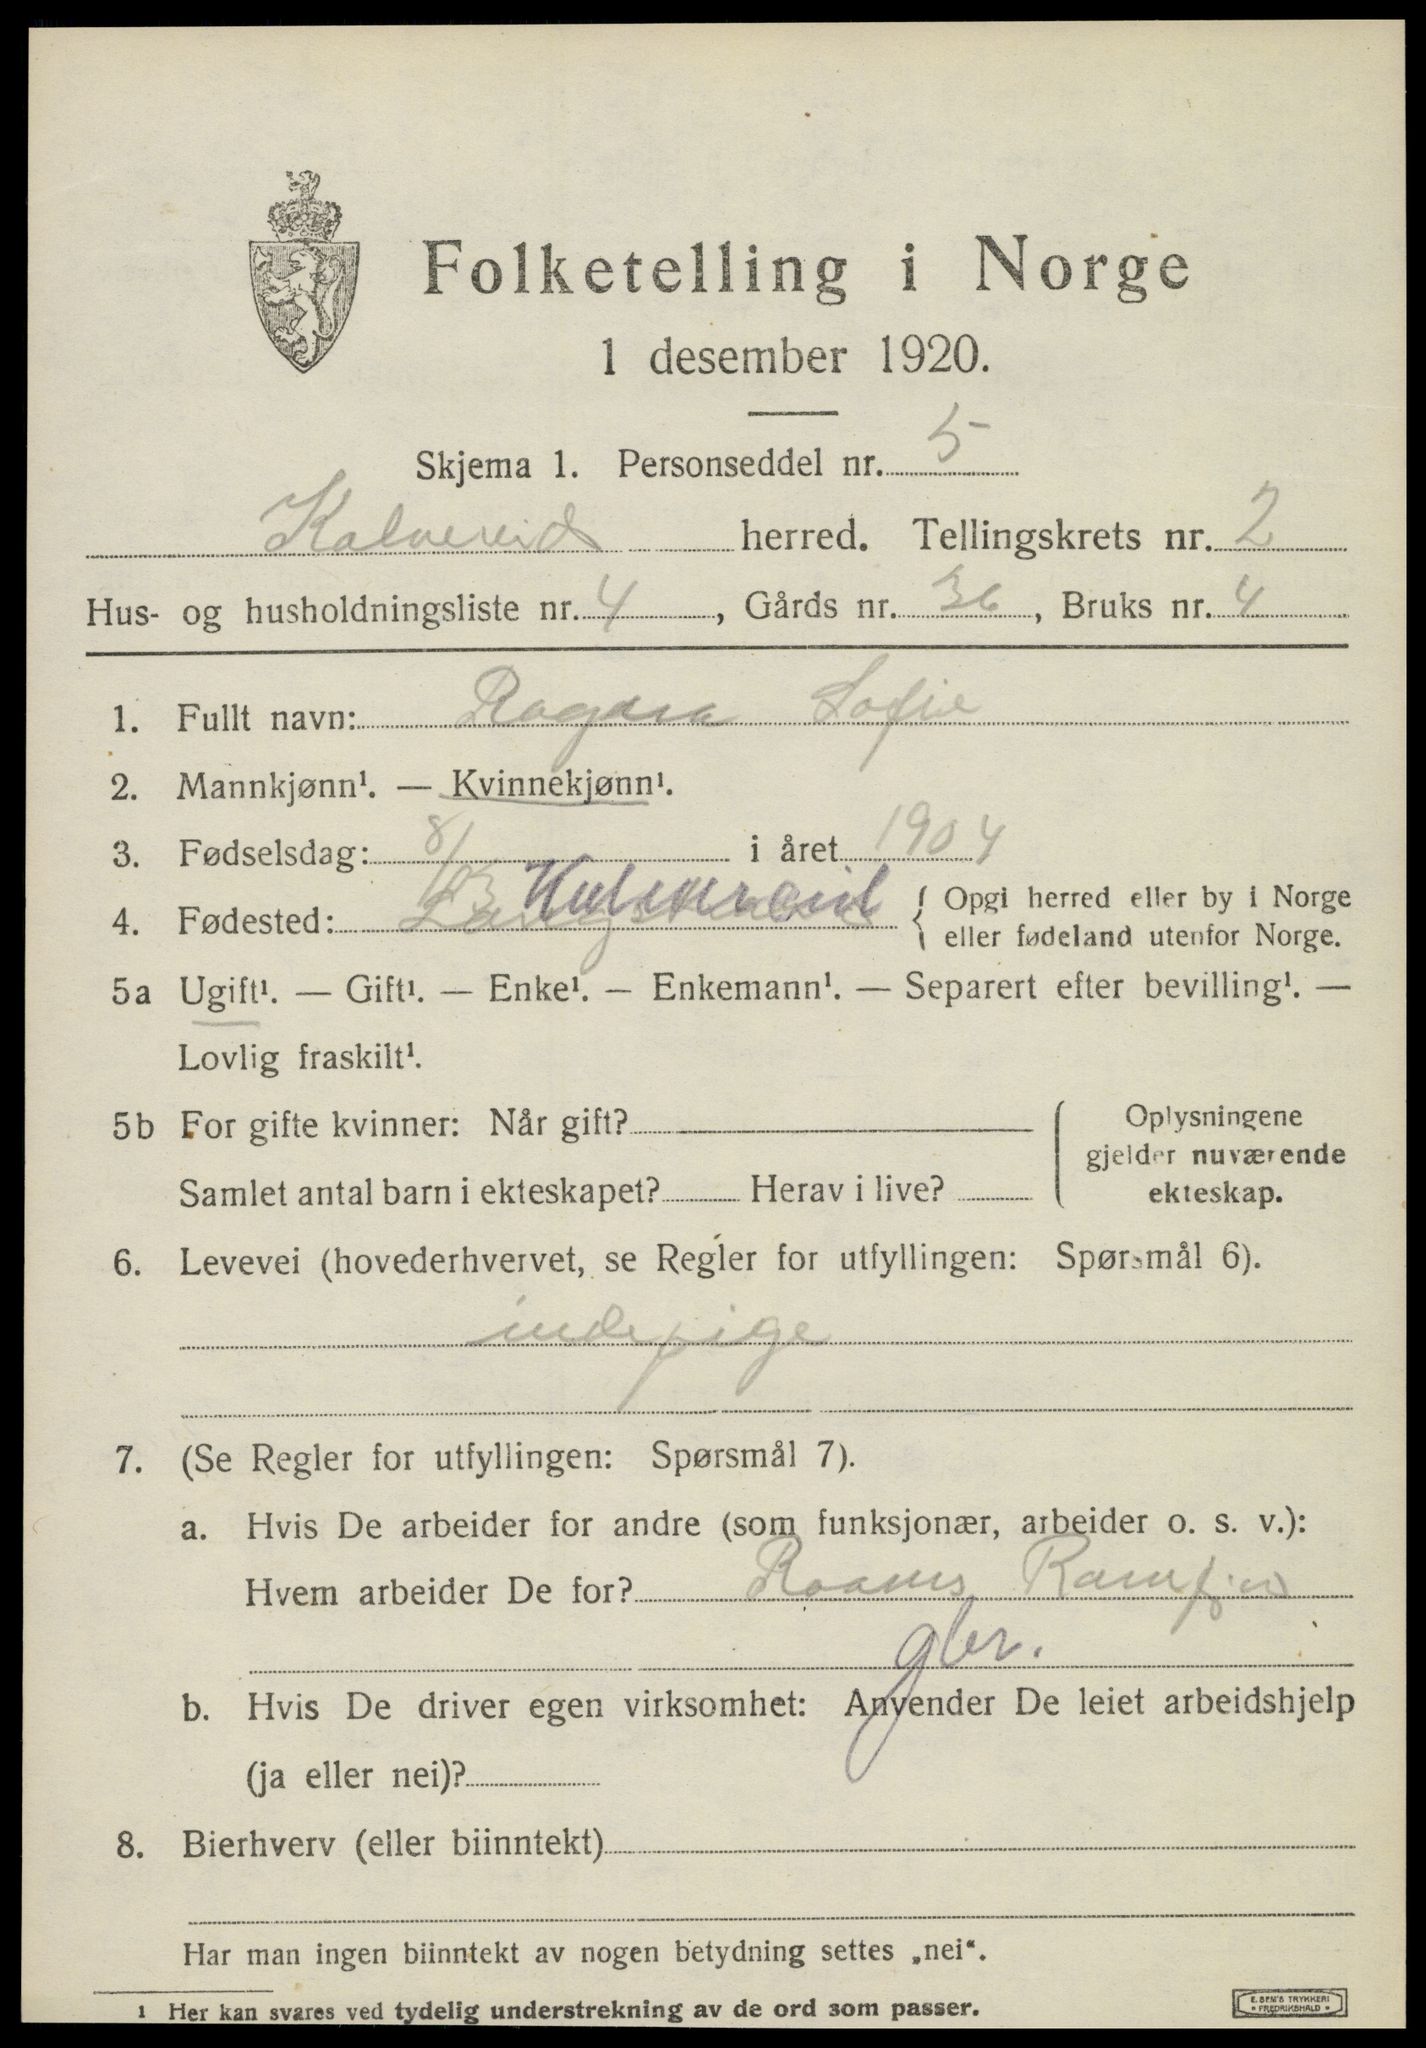 Folketelling i Norge
1 desember 1920.
Skjema 1. Personseddel nr. 5
Kalvereid herred. Tellingskrets nr. 2
Hus- og husholdningsliste nr. 4, Gårds nr. 36, Bruks nr. 4
1. Fullt navn: Ragna Sofie
2. Mannkjønn¹. — Kvinnekjønn¹.
3. Fødselsdag: 8/ i året 1904
4. Fødested: { Opgi herred eller by i Norge
eller fødeland utenfor Norge.
5a Ugift¹. — Gift¹. — Enke¹. — Enkemann¹. — Separert efter bevilling¹. —
Lovlig fraskilt¹.
5b For gifte kvinner: Når gift?
Samlet antal barn i ekteskapet? Herav i live?
Oplysningene
gjelder nuværende
ekteskap.
6. Levevei (hovederhvervet, se Regler for utfyllingen: Spørsmål 6).
indepige
7. (Se Regler for utfyllingen: Spørsmål 7).
a. Hvis De arbeider for andre (som funksjonær, arbeider o. s. v.):
Hvem arbeider De for?
gbr.
b. Hvis De driver egen virksomhet: Anvender De leiet arbeidshjelp
(ja eller nei)?
8. Bierhverv (eller biinntekt)
Har man ingen biinntekt av nogen betydning settes „nei“.
1 Her kan svares ved tydelig understrekning av de ord som passer.
E. SEM'S TRYKKERI
• FREDRIKSHALD •